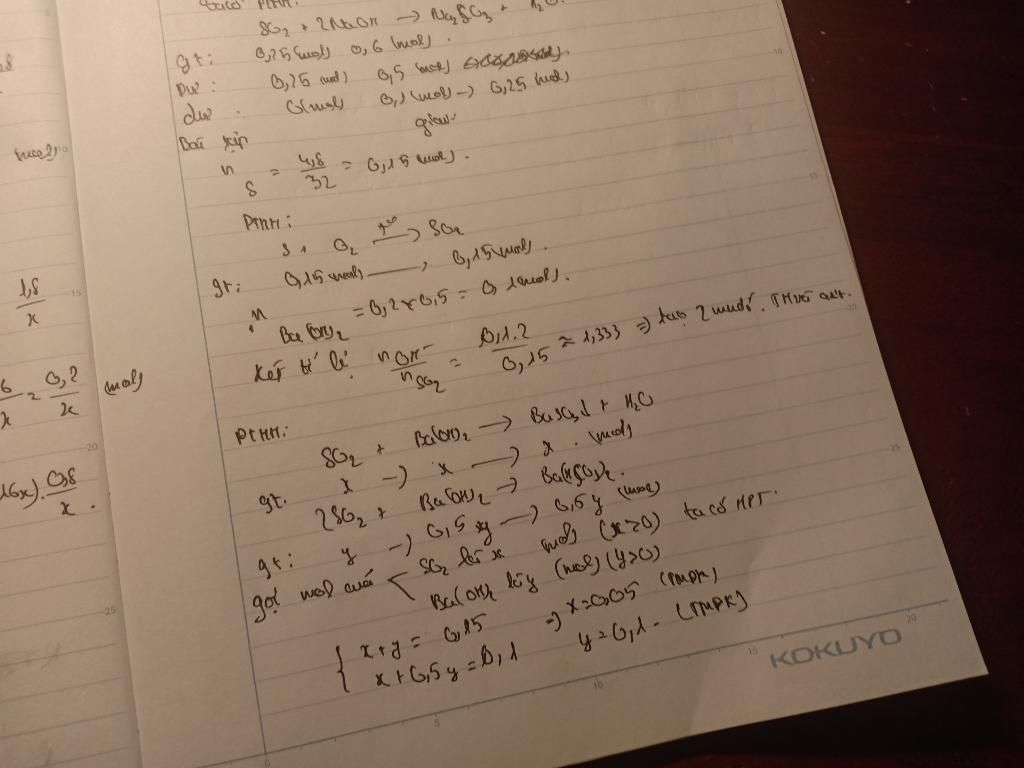 ta có PTHH:
SO₂ + 2NaOH → Na₂SO₃ + H₂O.
gt: 0,25 (mol) 0,6 (mol).
PƯ: 0,25 (mol) 0,5 (mol)
dư: 0 (mol) 0,1 (mol) → 0,25 (mol)
Bài
giải:
n S = 4,8/32 = 0,15 (mol).
PTHH:
S + O₂ →(t°) SO₂
gt: 0,15 (mol) → 0,15 (mol).
n Ba(OH)₂ = 0,2 × 0,5 = 0,1 (mol).
Xét tỉ lệ: n OH⁻ / n SO₂ = 0,1.2/0,15 ≈ 1,333 => tạo 2 muối.
PTHH:
SO₂ + Ba(OH)₂ → BaSO₃↓ + H₂O
gt: x → x → x (mol)
2SO₂ + Ba(OH)₂ → Ba(HSO₃)₂.
gt: y → 0,5 y → 0,5 y (mol)
gọi mol của < SO₂ là x mol (x>0) ta có HPT.
Ba(OH)₂ là y (mol) (y>0)
{ x + y = 0,15 => x = 0,05 (TMĐK)
x + 0,5y = 0,1 y = 0,1 (TMĐK)
KOKUYO
1,8/x
6/x = 0,2/x (mol)
16x). 0,8/x.
(mol)
10
15
20
25
0
5
10
15
20